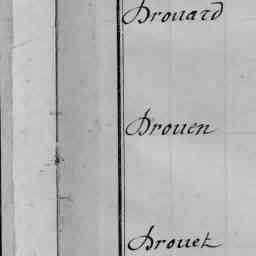 Drouard
Drouen
Drouet